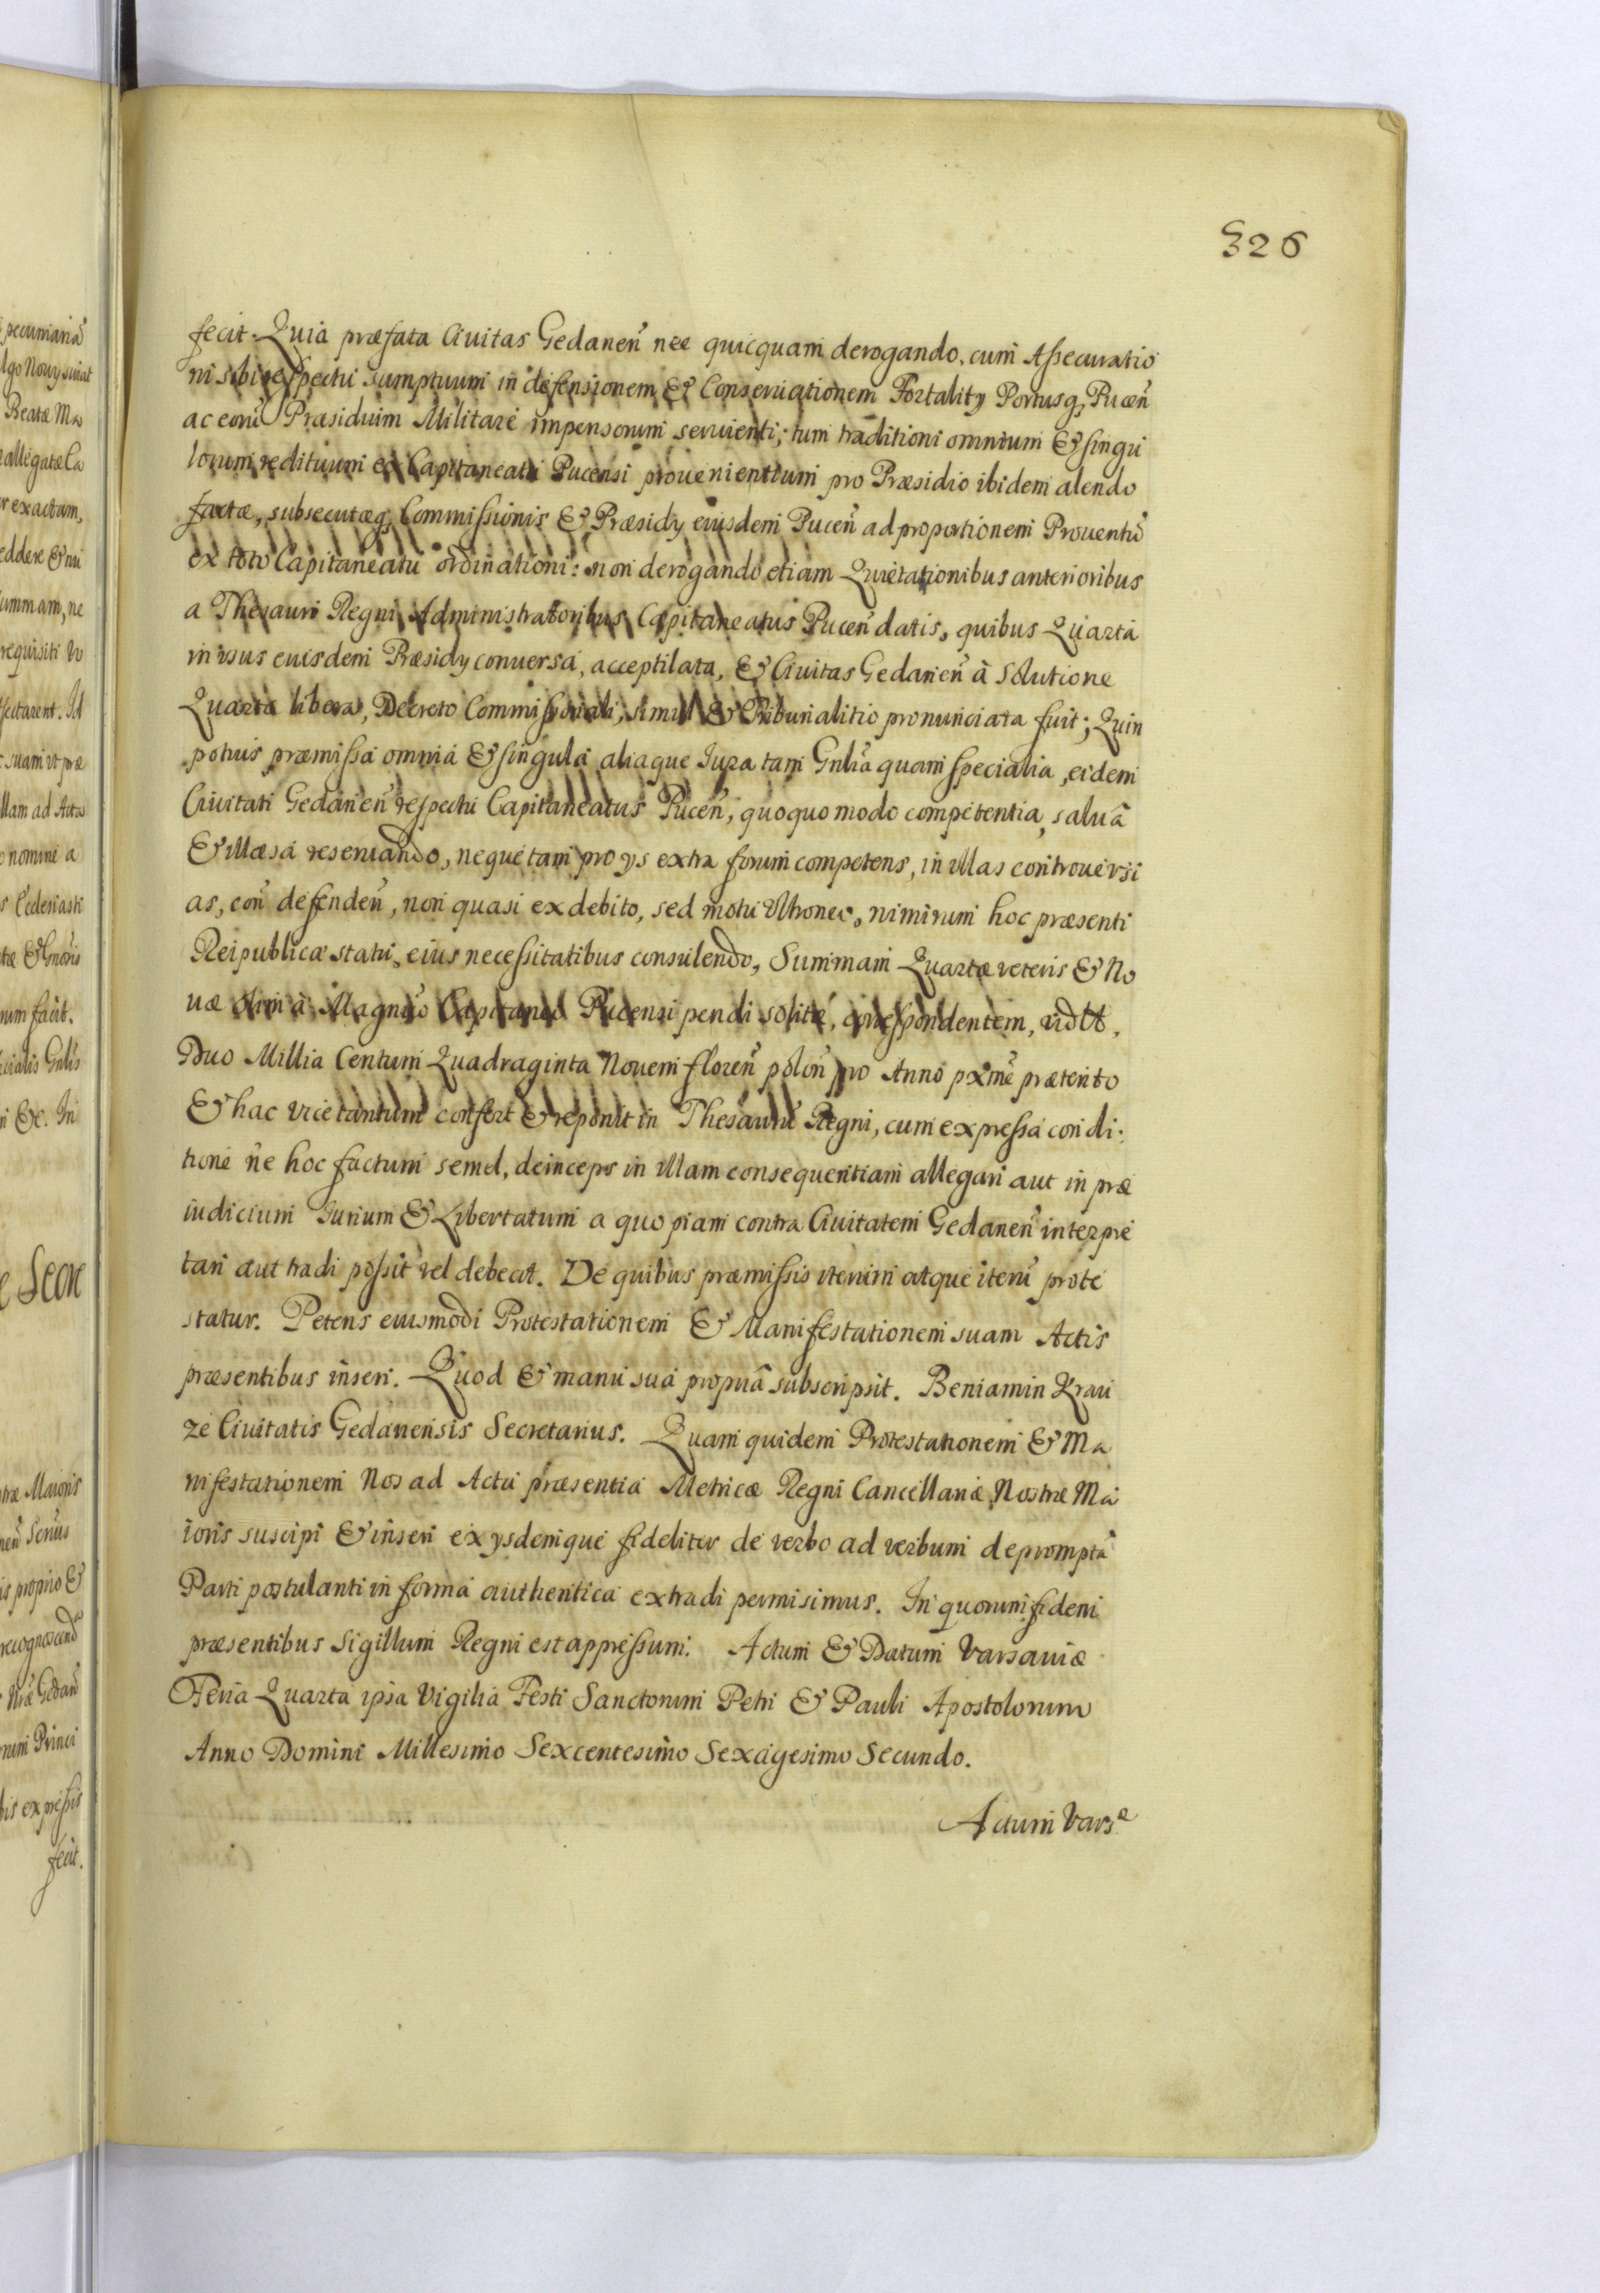 326
fecit. Quia præfata Ciuitas Gedaneñ nec quicquam derogando, cum Assecuratio
ni sibi respectu sumptuum in defensionem & Conseruationem Fortality Portusq, Puceñ
ac eorũ Præsidium Militare impensorum seruienti; tum traditioni omnium & singu
lorum redituum ex Capitaneatu Pucensi prouenientium pro Præsidio ibidem alendo
factæ, subsecutæq, Commissionis & Præsidy eiusdem Puceñ ad proportionem Prouentũ
ex toto Capitaneatu ordinationi: non derogando etiam Quietationibus anterioribus
a Thesauri Regni Administratoribus Capitaneatus Puceñ datis, quibus Quarta
in usus euisdem Præsidy conuersa, acceptilata, & Ciuitas Gedaneñ à solutione
Quartæ libera, Decreto Commissoriali, simul & Tribunalitio pronunciata fuit; Quin
potius præmissa omnia & singula aliaque Iura tam Gnlia quam specialia, eidem
Ciuitati Gedaneñ respectu Capitaneatus Puceñ, quoquo modo competentia, saluâ
& illæsa reseruando, neque tam pro ys extra forum competens, in illas controuersi
as, coñ defendeñ, non quasi ex debito, sed motu ultroneo, nimirum hoc præsenti
Reipublicæ statu, eius necessitatibus consulendo, Summam Quartæ veteris & No
uæ olim à Magnco Capitaneo Pucensi pendi solitæ, correspondentem, vidlt.
Duo Millia Centum Quadraginta Nouem floreñ poloñ pro Anno pxme præterito
& hac vice tantum confert & reponit in Thesaurũ Regni, cum expressa condi:
tione ne hoc factum semel, deinceps in illam consequentiam allegari aut in præ
iudicium Iurium & Libertatum a quopiam contra Ciuitatem Gedaneñ interpre
tari aut tradi possit vel debeat. De quibus præmissis iterum atque iterũ prote
statur. Petens eiusmodi Protestationem & Manifestationem suam Actis
præsentibus inseri. Quod & manu sua propriâ subscripsit. Beniamin Krau
ze Ciuitatis Gedanensis Secretarius. Quam quidem Protestationem & Ma
nifestationem Nos ad Acta præsentia Metricæ Regni Cancellariæ Nostræ Ma
ioris suscipi & inseri ex ysdemque fideliter de verbo ad verbum deprompta
Parti postulanti in forma authentica extradi permisimus. In quorum fidem
præsentibus Sigillum Regni est appressum. Actum & Datum Varsauiæ
Feria Quarta ipsa Vigilia Festi Sanctorum Petri & Pauli Apostolorum
Anno Domini Millesimo Sexcentesimo Sexagesimo Secundo.
Actum Varsæ